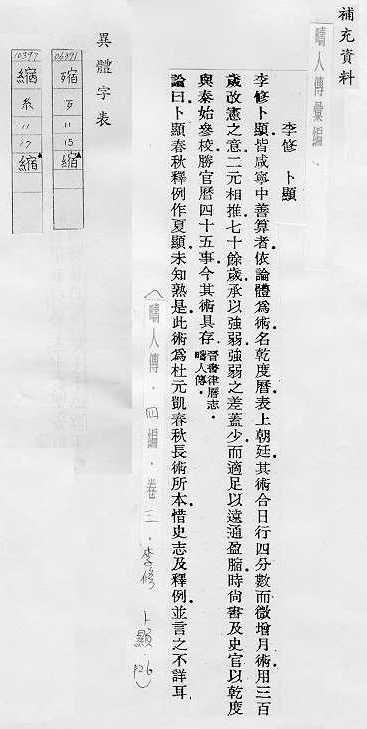 補充資料
疇人傳彙編．
李修　卜顯
李修卜顯皆咸寧中善算者依論體爲術名乾度曆表上朝廷其術合日行四分數而微增月術用三百
歲改憲之意二元相推七十餘歲承以強弱強弱之差蓋少而適足以遠通盈䐴時尚書及史官以乾度
與泰始參校勝官曆四十五事今其術具存晉書律曆志．疇人傳．
論曰卜顯春秋釋例作夏顯未知熟是此術爲杜元凱春秋長術所本惜史志及釋例並言之不詳耳
（疇人傳．四編．卷三．李修 卜顯 P26）
異體字表
06891
石
11
15
縮
10397
縮
糸
11
17
縮